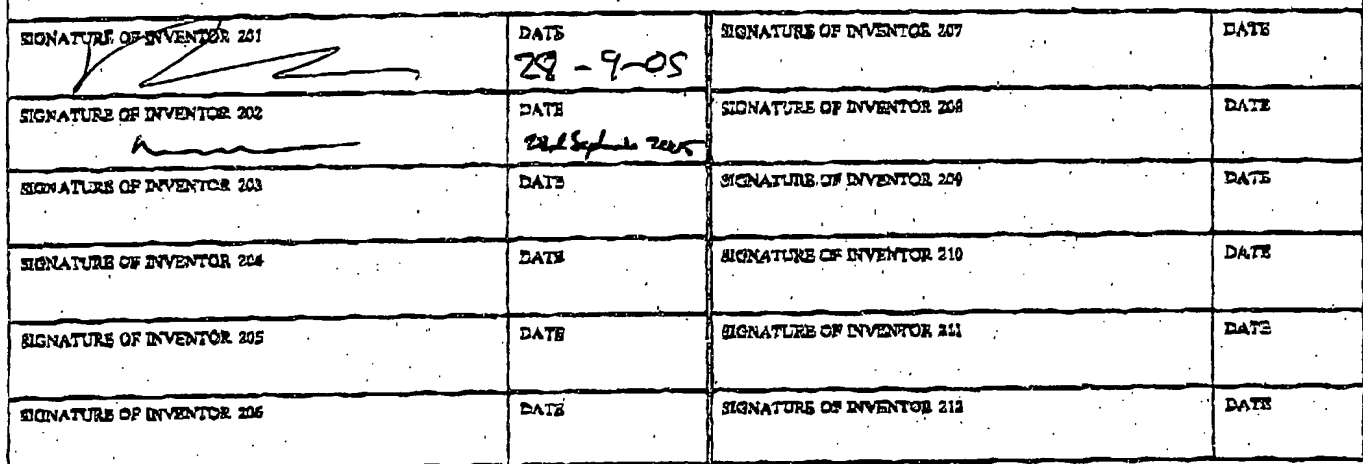 SIGNATURE OF INVENTOR 201 DATE SIGNATURE OF INVENTOR 207 DATE
28-9-05
SIGNATURE OF INVENTOR 202 DATE SIGNATURE OF INVENTOR 208 DATE
28th September 2005
SIGNATURE OF INVENTOR 203 DATE SIGNATURE OF INVENTOR 209 DATE
SIGNATURE OF INVENTOR 204 DATE SIGNATURE OF INVENTOR 210 DATE
SIGNATURE OF INVENTOR 205 DATE SIGNATURE OF INVENTOR 211 DATE
SIGNATURE OF INVENTOR 206 DATE SIGNATURE OF INVENTOR 212 DATE